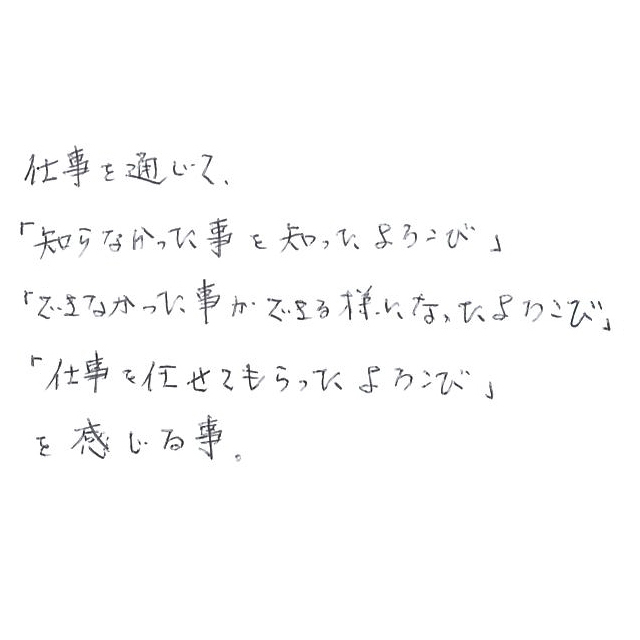 仕事を通じて、
「知らなかった事を知ったよろこび」
「できなかった事ができる様になったよろこび」
「仕事を任せてもらったよろこび」
を感じる事。